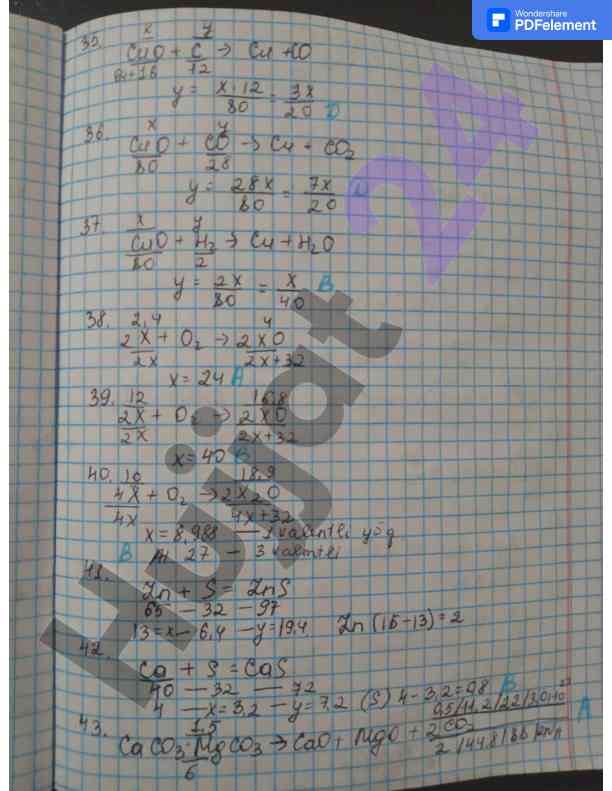 Wondershare
PDFelement
35. x y
CuO + C → Cu + CO
64+16 12
y = x·12/80 = 3x/20 D
36. x y
CuO + CO → Cu + CO2
80 28
y = 28x/80 = 7x/20
37. x y
CuO + H2 → Cu + H2O
80 2
y = 2x/80 = x/40 B
38. 2,4 4
2X + O2 → 2XO
2x 2x+32
x = 24 A
39. 12 16,8
2X + O2 → 2XO
2x 2x+32
x = 40 B
40. 10 18,9
4X + O2 → 2X2O
4x 4x+32
x = 8,988 — 1 valentli yoq
B 27 — 3 valentli
41.
Zn + S = ZnS
65 — 32 — 97
13 = x — 6,4 — y = 19,4 Zn (15-13) = 2
42.
Ca + S = CaS
40 — 32 — 72
4 — x = 3,2 — y = 7,2 (S) 4 - 3,2 = 0,8 B
43. 1,5 0,5/11,2/22/3,01·10²³ A
CaCO3·MgCO3 → CaO + MgO + 2CO2
6 2/44,8/88
Hujjat 24